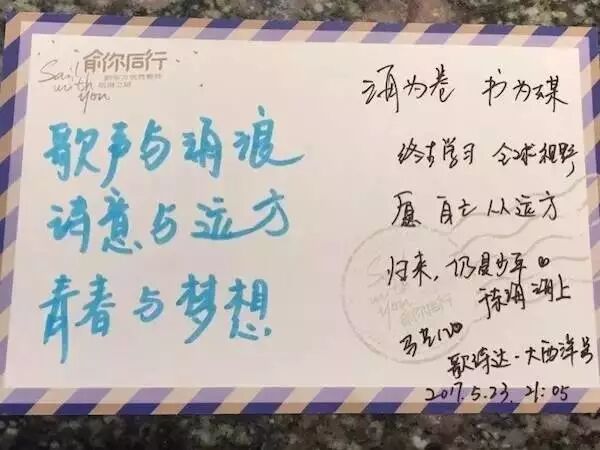 Sail with You
俞你同行
歌声与海浪
诗意与远方
青春与梦想
海为卷 书为媒
终身学习 全球视野
愿 自己 从远方
归来，仍是少年。
于东海 海上
歌诗达·大西洋号
2017.5.23. 21:05
Sail with You
俞你同行